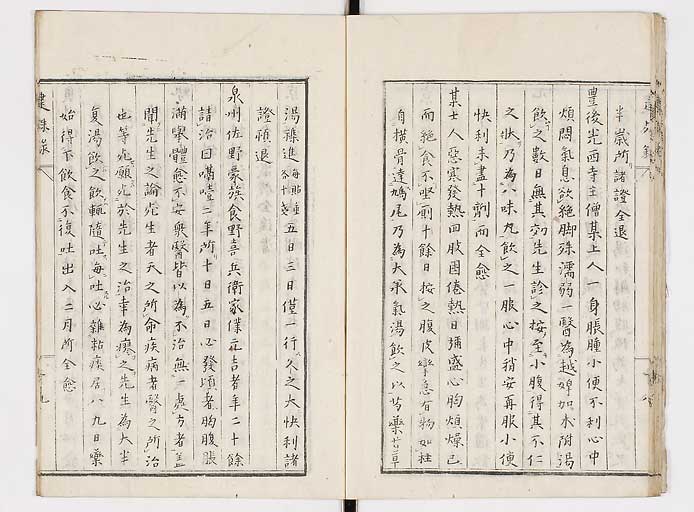 半歳所諸證全退
豊後光西寺主僧某上人一身脹腫小便不利心中
煩悶氣息欲絶脚殊濡弱一醫為越婢加朮附湯
飲之數日無其効先生診之按至小腹得其不仁
之狀乃為八味丸飲之一服心中稍安再服小便
快利未盡十劑而全愈
某士人惡寒發熱四肢困倦熱日彌盛心胸煩燥已
而絶食不堅厠十餘日按之腹皮攣急有物如柱
自横骨達鳩尾乃為大承氣湯飲之以芍藥甘草
湯雜進 每貼重各十錢 五日三日僅一行久之大快利諸
證頓退
泉州佐野豪族食野喜兵衛家僕元吉者年二十餘
請治曰噎二年所十日五日必發頃者胸腹脹
滿擧體愈不安衆醫皆以為不治無一處方者蓋
聞先生之論死生者天之所命疾病者醫之所治
也等死願死於先生之治幸為療之先生為大半
夏湯飲之飲輙隨吐每吐必雜粘痰居八九日藥
始得下飲食不復吐出入二月所全愈
建珠录